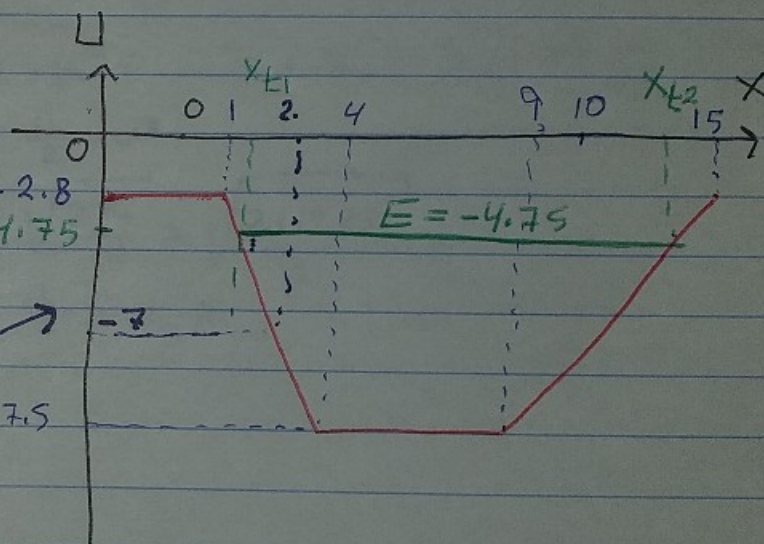 U
x_t1 x_t2 x
0 1 2. 4 9 10 15
0
-2.8
E = -4.75
4.75
-7
7.5